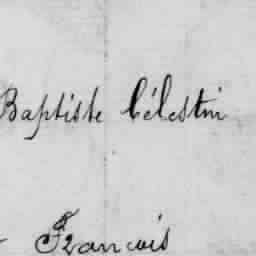 Baptiste Célestin
François